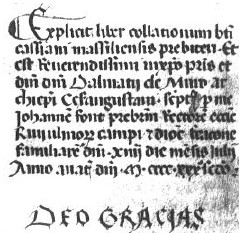 Explicit liber collationum bti
cassiani massiliensis prebiteri. Et
est Reverendissimi in xpo pris et
dni dni Dalmatii de Muro ar
chiepi Cesaraugustani. scpt p me
Johanne font prebrm Rectore ecce
dioc
familiare dni. xiiij die mensis julij
Anno a nat dni M cccc
DEO GRACIAS